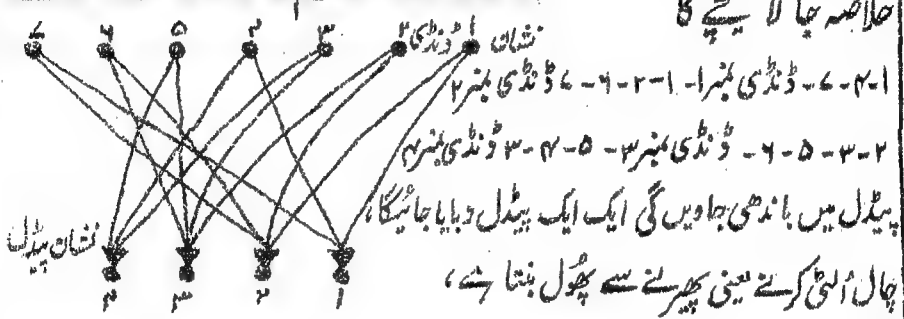 خلاصہ چالا یچے گا
۷ ۶ ۵ ۴ ۳ ۲ ۱
نشان ڈنڈی
۱-۴-۷- ڈنڈی نمبر۱- ۱-۲-۶-۷ ڈنڈی نمبر۲
۲-۳-۵-۶- ڈنڈی نمبر۳- ۵-۴-۳ ڈنڈی نمبر۴
پیڈل میں باندھی جاویں گی ایک ایک پیڈل دبایا جائیگا،
نشان پیڈل
چال اُلٹی کرنے یعنی پھرنے سے پھول بنتا ہے،
۴ ۳ ۲ ۱